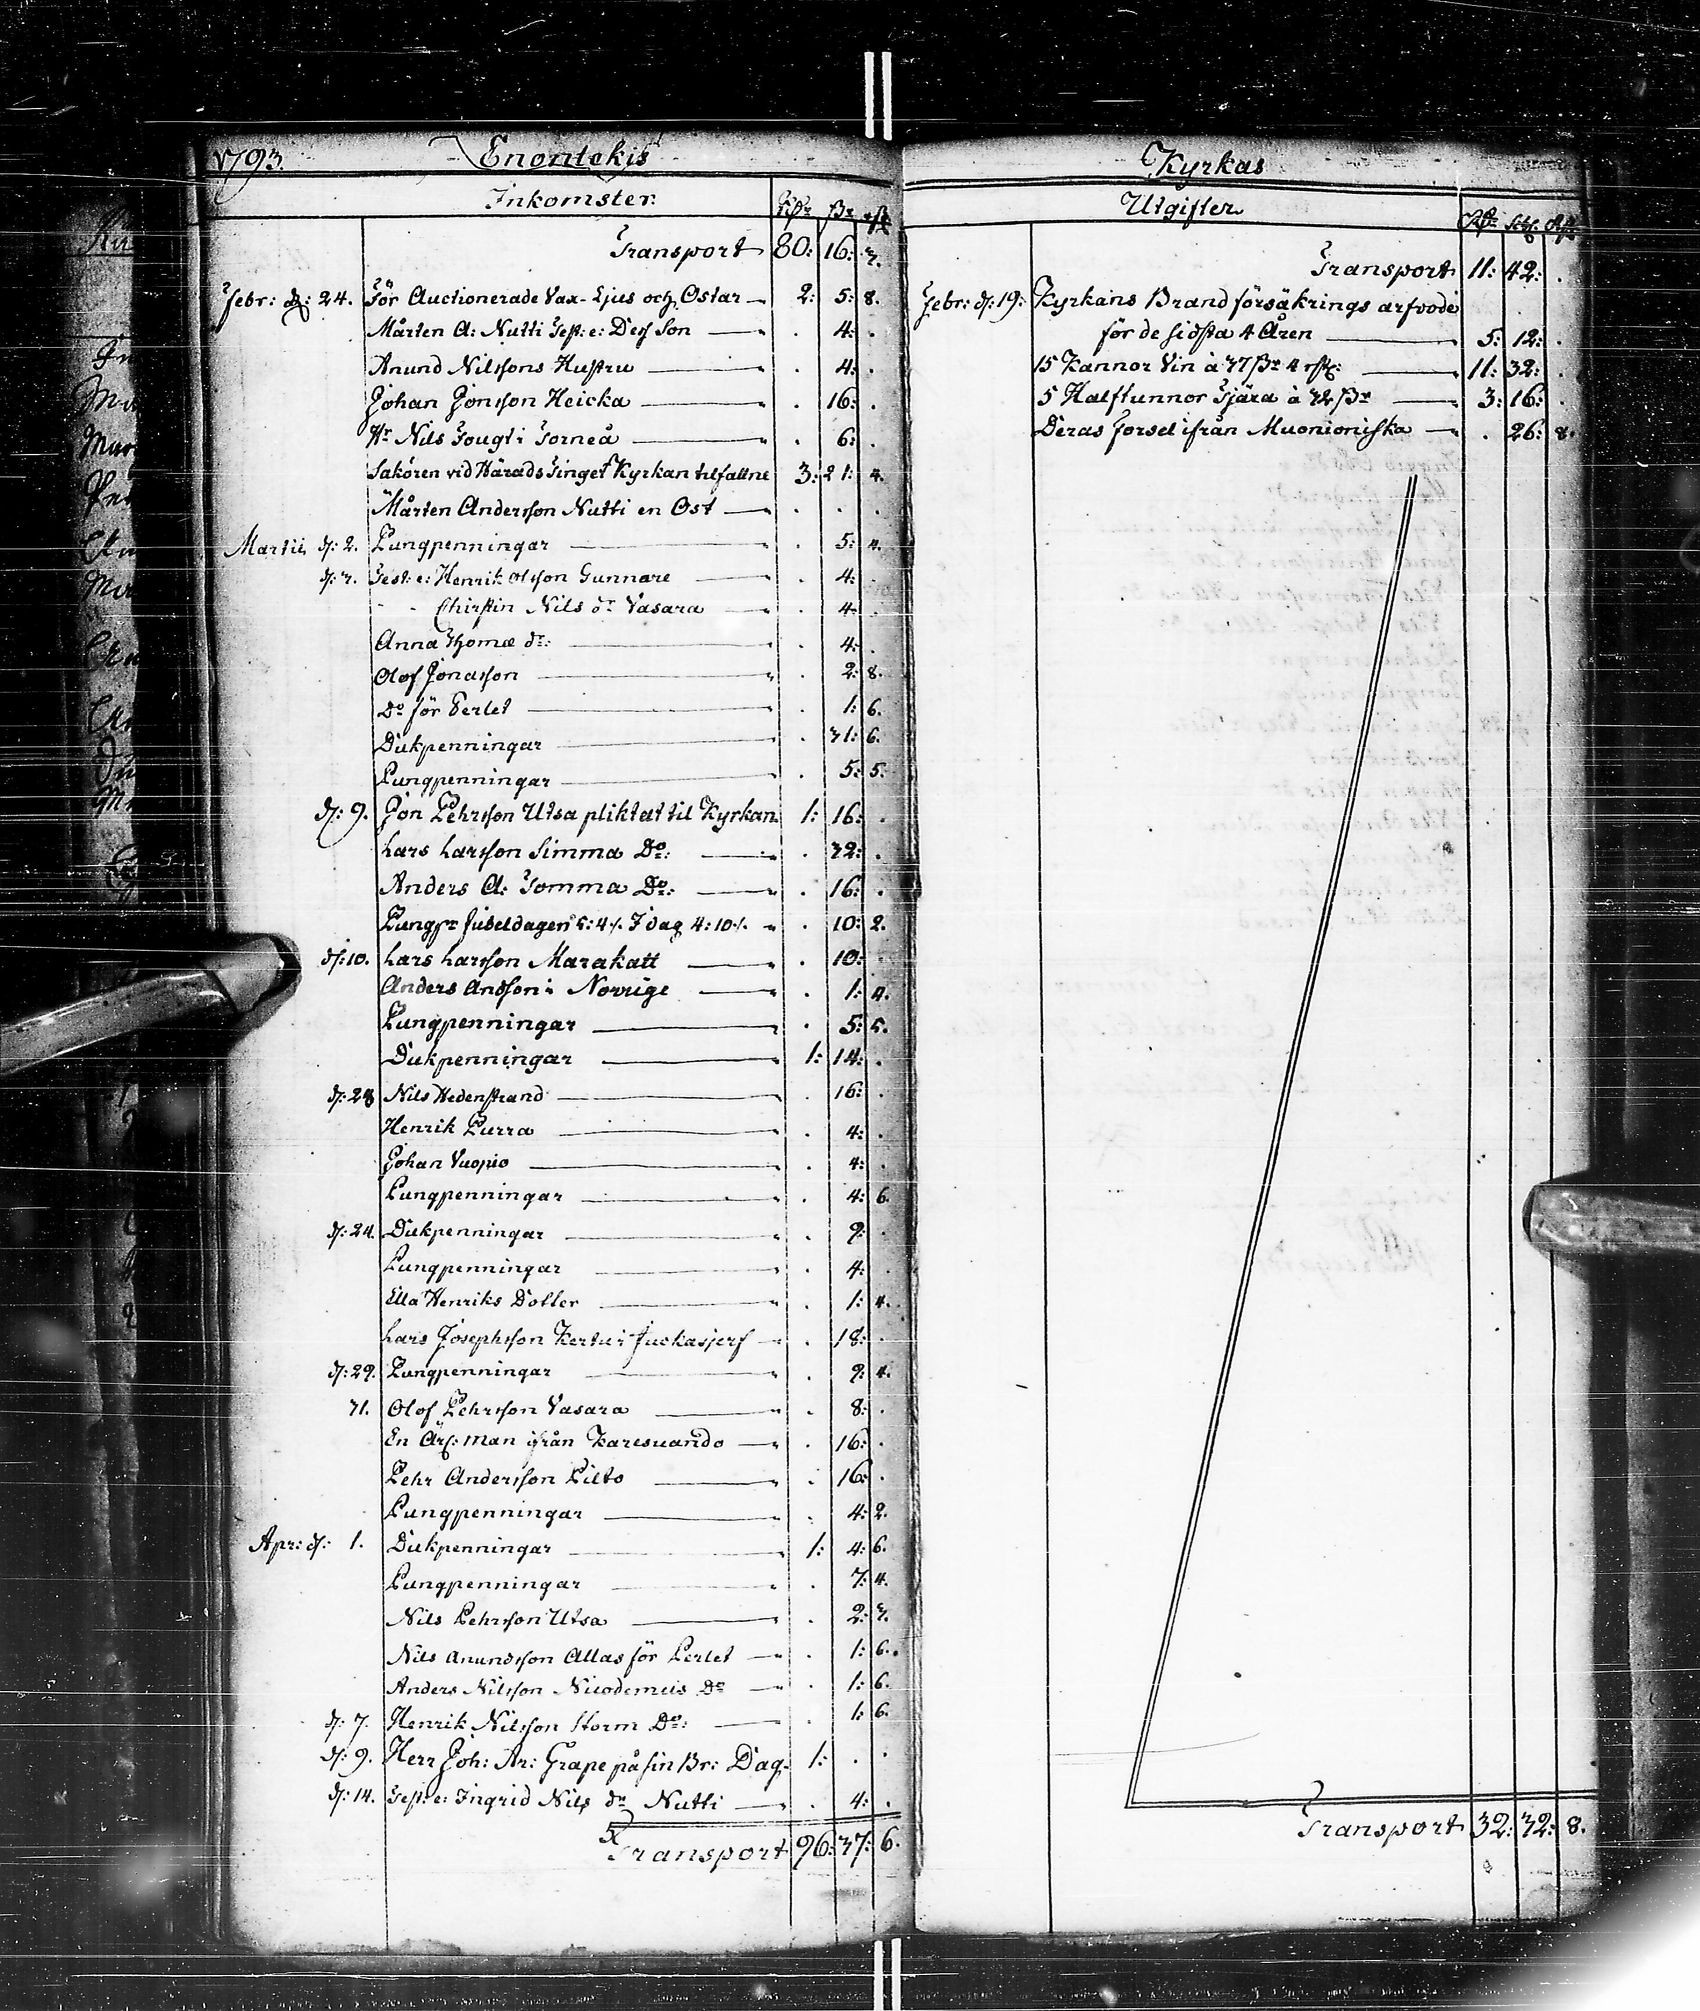 1793. Enontekis
Inkomster. Rdr ßr rst
Transport 80: 16: 3.
Febr: d: 24. För Auctionerade Vax-Ljus och Ostar 2: 5: 8.
Mårten A: Nutti Test: e: Dess Son . 4: .
Anund Nilssons Hustru . 4: .
Johan Jonsson Heicka . 16: .
Hr Nils Fougt i Torneå . 6: .
Sakören vid Härads Tinget Kyrkan tilfallne 3: 21: 4.
Mårten Andersson Nutti en Ost . . .
Martii d: 2. Pungpenningar . 5: 4.
d: 3. Test: e: Henrik Olsson Gunnare . 4: .
- - Chirstin Nils dr Vasara . 4: .
Anna Thomæ dr: . 4: .
Olof Jonasson . 2: 8.
Do för Perlet . 1: 6.
Dukpenningar . 31: 6.
Pungpenningar . 5: 5.
d: 9. Jon Pehrsson Utsa pliktat til Kyrkan 1: 16: .
Lars Larsson Simma Do: . 32: .
Anders A: Tomma Do: . 16: .
Pungpr Jubeldagen 5: 4/. I dag 4: 10/. . 10: 2.
d: 10. Lars Larsson Marakatt . 10: .
Anders Andsson i Norrige . 1: 4.
Pungpenningar . 5: 5.
Dukpenningar 1: 14: .
d: 23 Nils Hedenstrand . 16: .
Henrik Purra . 4: .
Johan Vuopio . 4: .
Pungpenningar . 4: 6.
d: 24. Dukpenningar . 9: .
Pungpenningar . 4: .
Ella Henriks Dotter . 1: 4.
Lars Josephsson Kertu i Juckasjerf . 18: .
d: 29. Pungpenningar . 9: 4.
31. Olof Pehrsson Vasara . 8: .
En Ärl: man ifrån Karesuando . 16: .
Pehr Andersson Pilto . 16: .
Pungpenningar . 4: 2.
Apr: d: 1. Dukpenningar 1: 4: 6.
Pungpenningar . 7: 4.
Nils Pehrsson Utsa . 2: 3.
Nils Anundsson Allas för Perlet . 1: 6.
Anders Nilsson Nicodemus Do . 1: 6.
d: 7. Henrik Nilsson Storm Do: . 1: 6.
d: 9. Herr Joh: Ar: Grape på sin Br: Dag. 1: . .
d: 14. Test: e: Ingrid Nils dr Nutti . 4: .
Transport 96: 37: 6.
Kyrkas
Utgifter Rdr sk: rst
Transport 11: 42: .
Febr: d: 19: Kyrkans Brandförsäkrings arfvode
för de sidsta 4 Åren 5: 12: .
15 Kannor Vin à 37 ßr 4 rst: 11: 32: .
5 Halftunnor Tjära à 32 ßr 3: 16: .
Deras forsel ifrån Muonioniska . 26: 8.
Transport 32: 32: 8.